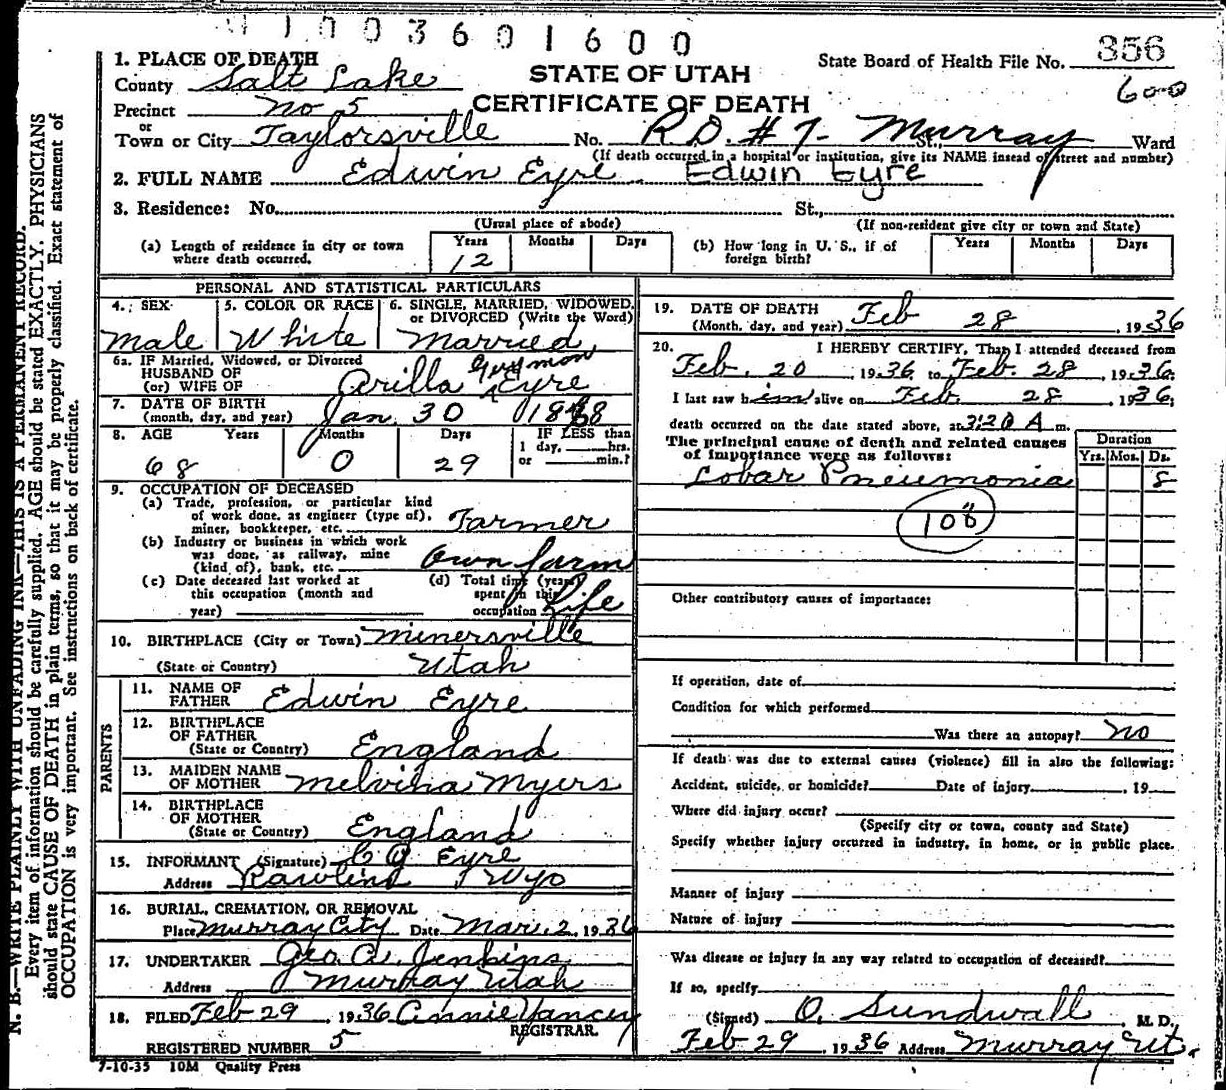 1003601600
1. PLACE OF DEATH
County Salt Lake
STATE OF UTAH
State Board of Health File No. 356
600
Precinct No 5
CERTIFICATE OF DEATH
or
Town or City Taylorsville No. R.D. # 7- Murray St., Ward
(If death occurred in a hospital or institution, give its NAME insead of street and number)
2. FULL NAME Edwin Eyre Edwin Eyre
3. Residence: No. St.,
(Usual place of abode) (If non-resident give city or town and State)
(a) Length of residence in city or town where death occurred. Years 12 Months Days
(b) How long in U. S., if of foreign birth? Years Months Days
PERSONAL AND STATISTICAL PARTICULARS
4. SEX Male
5. COLOR OR RACE White
6. SINGLE, MARRIED, WIDOWED, or DIVORCED (Write the Word) Married
6a. IF Married, Widowed, or Divorced
HUSBAND OF
(or) WIFE OF Arilla Guymon Eyre
7. DATE OF BIRTH
(month, day, and year) Jan. 30 1868
8. AGE Years 68 Months 0 Days 29 IF LESS than 1 day, hrs. or min.?
9. OCCUPATION OF DECEASED
(a) Trade, profession, or particular kind
of work done, as engineer (type of),
miner, bookkeeper, etc. Farmer
(b) Industry or business in which work
was done, as railway, mine
(kind of), bank, etc. Own farm
(c) Date deceased last worked at
this occupation (month and
year)
(d) Total time (years)
spent in this
occupation Life
10. BIRTHPLACE (City or Town) Minersville
(State or Country) Utah
PARENTS
11. NAME OF FATHER Edwin Eyre
12. BIRTHPLACE OF FATHER
(State or Country) England
13. MAIDEN NAME OF MOTHER Melvina Myers
14. BIRTHPLACE OF MOTHER
(State or Country) England
15. INFORMANT (Signature) Eyre
Address Rawlins Wyo
16. BURIAL, CREMATION, OR REMOVAL
Place Murray City Date Mar. 2, 1936
17. UNDERTAKER Geo. A. Jenkins
Address Murray Utah
18. FILED Feb 29, 1936 Annie Yancey
REGISTRAR.
REGISTERED NUMBER 5
7-10-35 10M Quality Press
19. DATE OF DEATH
(Month, day, and year) Feb 28, 1936
20. I HEREBY CERTIFY, That I attended deceased from
Feb. 20, 1936 to Feb. 28, 1936
I last saw him alive on Feb 28, 1936,
death occurred on the date stated above, at 3:20 A m.
The principal cause of death and related causes
of importance were as follows:
Duration
Yrs. Mos. Ds.
Lobar Pneumonia 8
108
Other contributory causes of importance:
If operation, date of
Condition for which performed
Was there an autopsy? No
If death was due to external causes (violence) fill in also the following:
Accident, suicide, or homicide? Date of injury , 19
Where did injury occur?
(Specify city or town, county and State)
Specify whether injury occurred in industry, in home, or in public place.
Manner of injury
Nature of injury
Was disease or injury in any way related to occupation of deceased?
If so, specify
(Signed) O. Sundwall M. D.
Feb 29, 1936 Address Murray Ut.
N. B.—WRITE PLAINLY WITH UNFADING INK—THIS IS A PERMANENT RECORD.
Every item of information should be carefully supplied. AGE should be stated EXACTLY. PHYSICIANS
should state CAUSE OF DEATH in plain terms, so that it may be properly classified. Exact statement of
OCCUPATION is very important. See instructions on back of certificate.